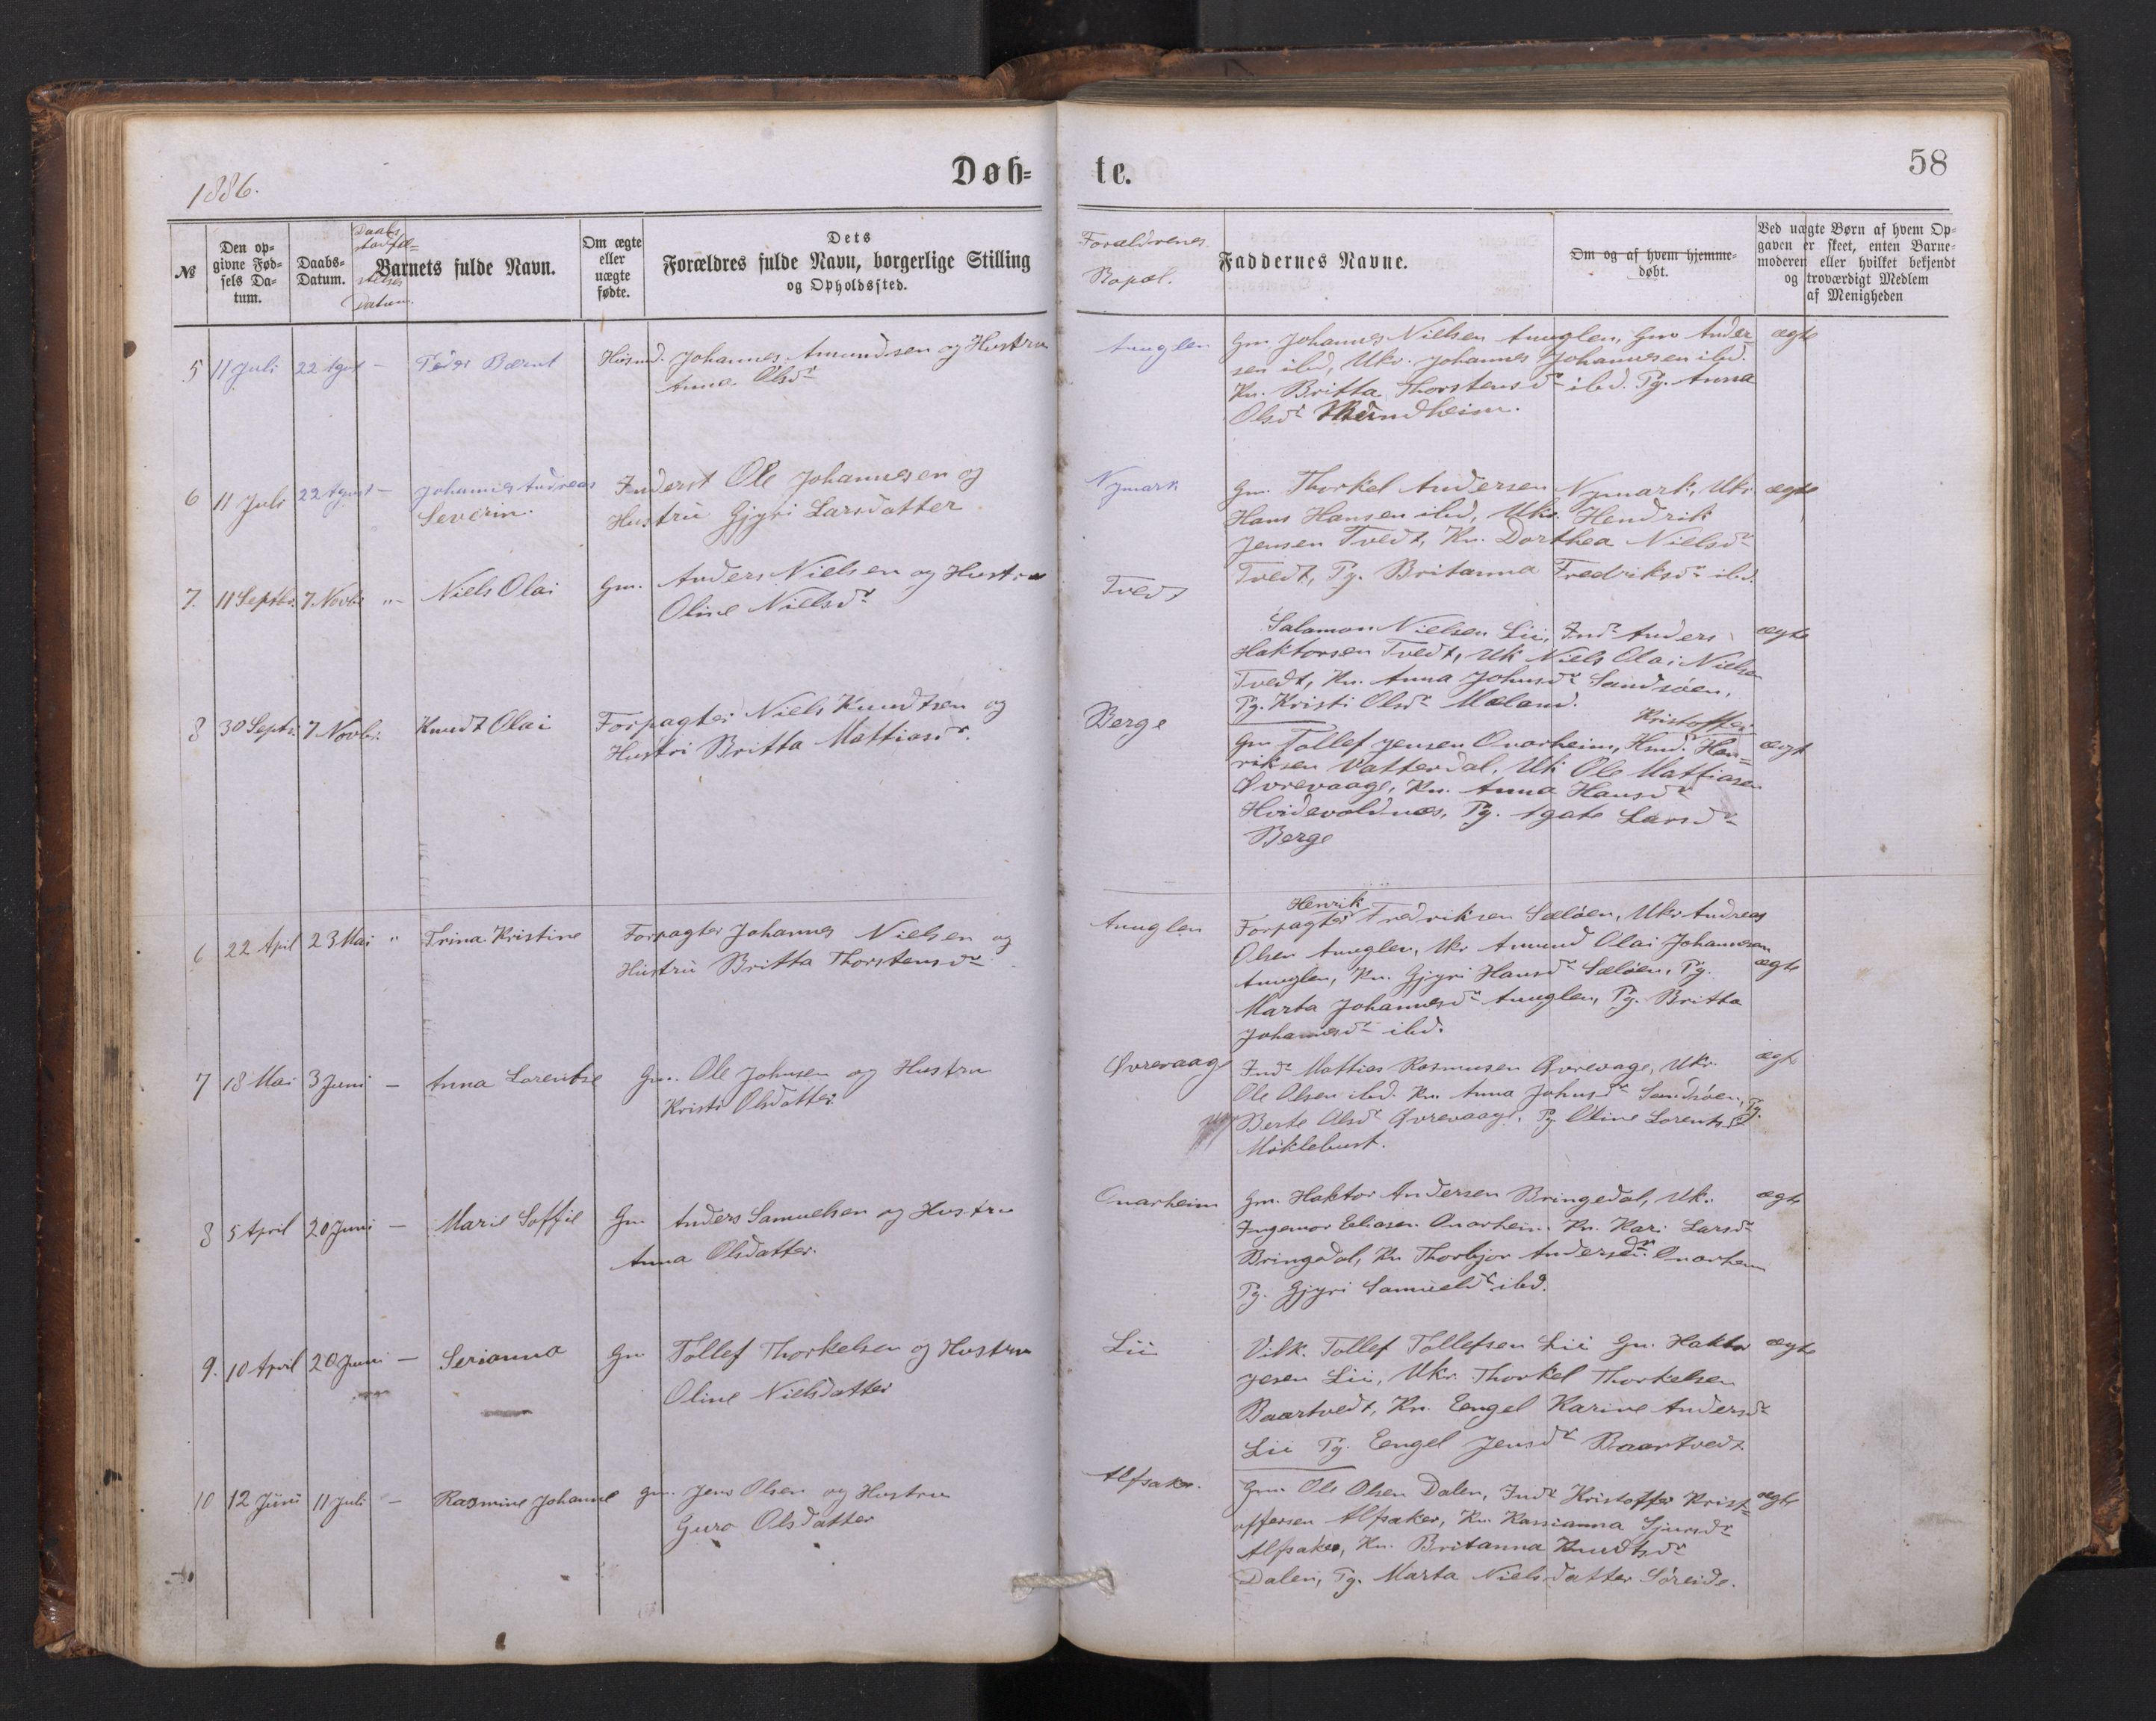 1886.
Døb-
te.
58
№
Den op-
givne Fød-
sels Da-
tum.
Daabs-
Datum.
Daabs
stadfæ-
stelses
Datum.
Barnets fulde Navn.
Om ægte
eller
uægte
fødte.
Dets
Forældres fulde Navn, borgerlige Stilling
og Opholdssted.
Forældrenes
Bopæl.
Faddernes Navne.
Om og af hvem hjemme-
døbt.
Ved uægte Børn af hvem Op-
gaven er skeet, enten Barne-
moderen eller hvilket bekjendt
og troværdigt Medlem
af Menigheden
5 11 Juli 22 Agust - Peder Bærnt Husmd. Johannes Amundsen og Hustru
Anna Olsdr
Anuglen
Gm. Johannes Nielsen Anuglen, Gm Ander
sen ibd, Ukr. Johannes Johannesen ibd.
Kn. Britta Thorstensdr ibd. Pg. Anna
Olsdr Hundheim.
ægte
6 11 Juli 22 Agust - Johannes Andreas
Severin.
Inderst Ole Johannesen og
Hustru Gjyri Larsdatter
Nymark
Gm. Thorkel Andersen Nymark, Ukr
Hans Hansen ibd, Ukr. Hendrik
Jensen Tvedt, Kn. Dorthea Nielsdr
Tvedt, Pg. Britanna Fredriksdr ibd.
ægte
7. 11 Septbr. 7 Novbr "- Niels Olai Gm. Anders Nielsen og Hustru
Oline Nielsdr
Tvedt
Salamon Nielsen Lii, Indr Anders
Haktorsen Tvedt, Uk Niels Olai Nielsen
Tvedt, Kn. Anna Johnsdr Sandsøen,
Pg. Kristi Olsdr Mæland.
ægte
8 30 Septr. 7 Novbr. Knudt Olai Forpagter Niels Knudtsen og
Hustru Britta Mattiasdr.
Berge
Kristoffer
Gm Tollef Jensen Onarheim, Hmd. Hen-
riksen Vatterdal, Uk Ole Mattiasen
Øvrevaage, Kn. Anna Hansdr
Hvidevoldnæs, Pg. Agate Larsdr
Berge
ægte
6 22 April 23 Mai " Trina Kristine Forpagter Johannes Nielsen og
Hustru Britta Thorstensdr
Anuglen
Henrik
Forpagter Fredriksen Sæløen, Ukr Andreas
Olsen Anuglen, Ukr Amund Olai Johannesen
Anuglen, Kn. Gjyri Hansdr Sæløen, Pg.
Marta Johannesdr Anuglen, Pg. Britta
Johannesdr ibd.
ægte
7 18 Mai 3 Juni - Anna Lorentse Gm. Ole Johnsen og Hustru
Kristi Olsdatter.
Øvrevaage
Indr Mattias Rasmusen Øvrevage, Ukr.
Ole Olsen ibd. Kn. Anna Johnsdr Sandsøen, Pg.
Berte Olsdr Øvrevaage, Pg Oline Lorentsdr
Miklebust.
ægte
8 5 April 20 Juni - Marie Soffie Gm Anders Samuelsen og Hustru
Anna Olsdatter.
Onarheim
Gm. Haktor Andersen Bringedal, Uk.
Ingemor Eliasen Onarheim Kn. Kari Larsdr
Bringdal, Kn Thorbjor Andersdr Onarheim
Pg. Gjyri Samuelsdr ibd.
ægte
9. 10 April 20 Juni - Serianna Gm Tollef Thorkelsen og Hustru
Oline Nielsdatter
Lii
Vilk. Tollef Tollefsen Lii Gm. Haktor
Jesen Lii, Ukr. Thorkel Thorkelsen
Baartvedt, Kn. Engel Karine Andersdr
Lii Pg. Engel Jensdr Baartvedt
ægte
10 12 Juni 11 Juli - Rasmine Johanne gm. Jens Olsen og Hustru
Guro Olsdatter
Alfsaker.
Gm. Ole Olsen Dalen, Indr Kristoffer Krist-
offersen Alfsaker, Kn. Rasianna Sjursdr
Alfsaker, Kn. Britanna Knudtsdr
Dalen, Pg. Marta Nielsdatter Søreide.
ægte